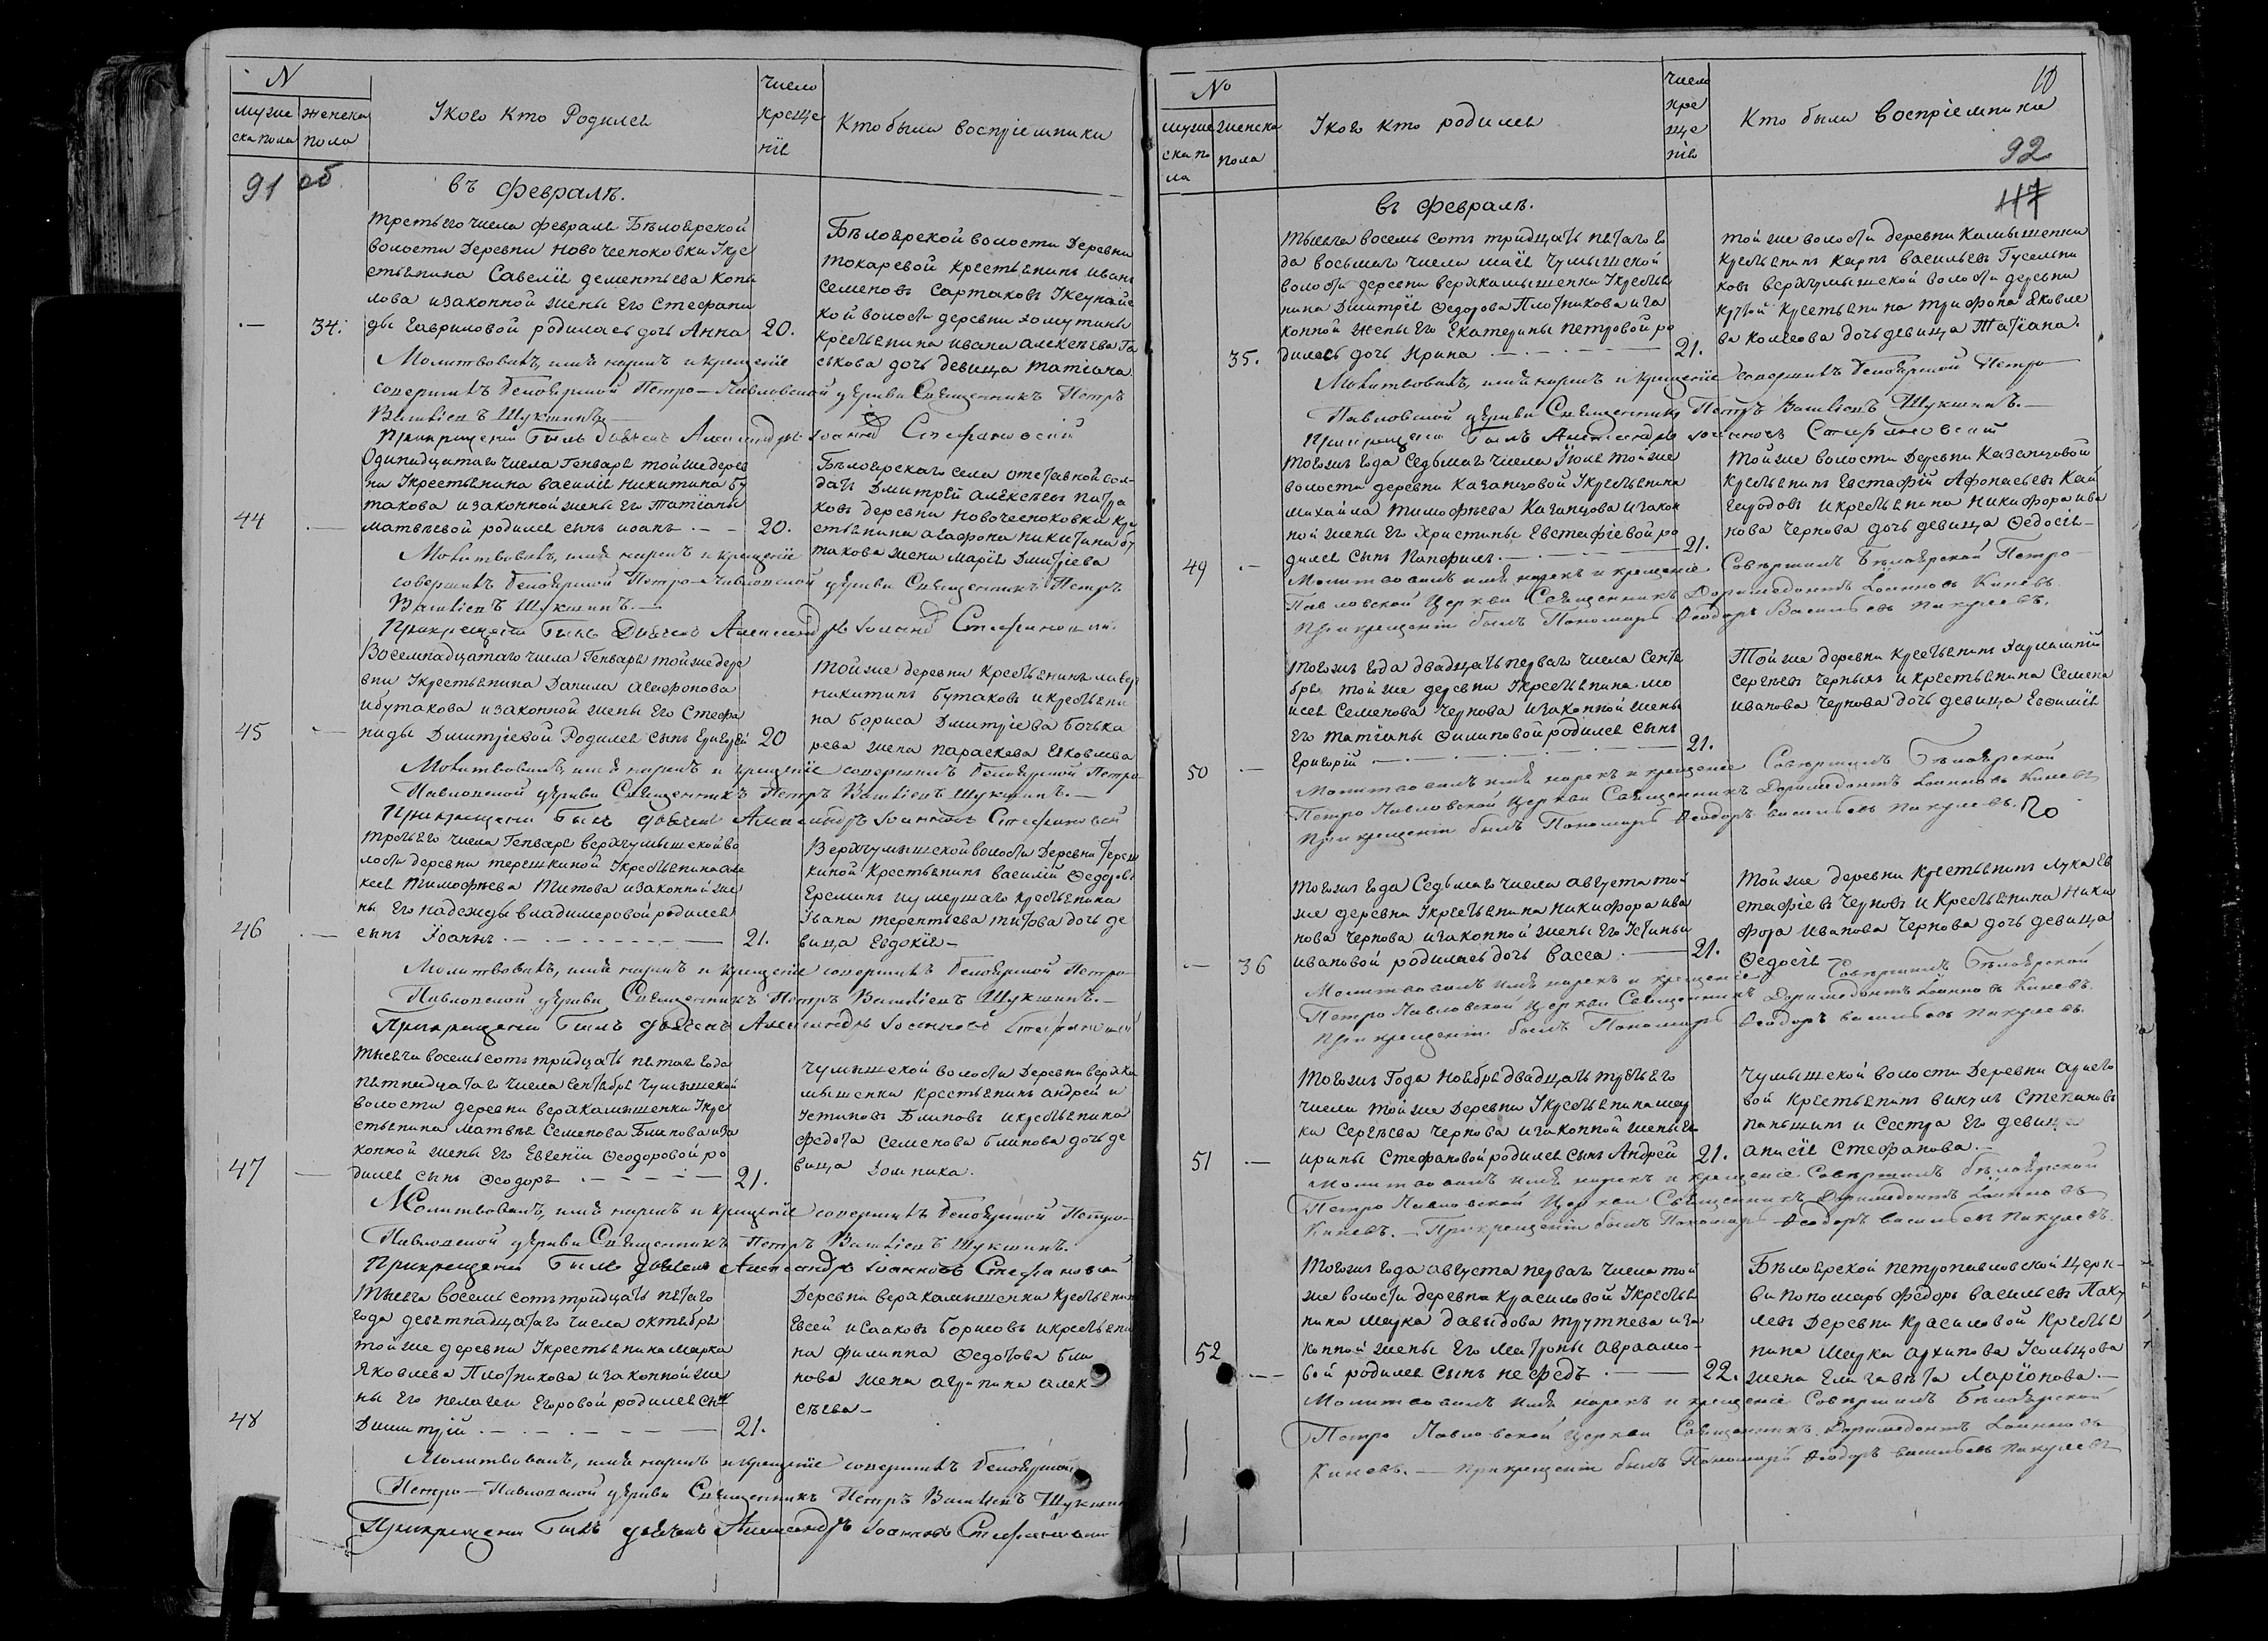 N
мужескa пола
женска пола
У кого кто Родился
число крещенія
Кто были воспріемники
91 об.
въ Февралѣ.
третьего числа февраля Бѣлоярской
волости деревни Новочесноковки У кре
стьянина Савелія дементьева Копы
лова и законной жены его Стефани
34. ды Гавриловой родилась дочь Анна 20.
Бѣлоярской волости деревни
токаревой крестьянинъ иванъ
семеновъ Сартаковъ
кой волости деревни хомутины
крестьянина ивана алексѣева
дочь девица татіана.
Молитвовалъ, имя нарекъ и крещеніе
совершилъ Белоярской Петро-Павловской церкви Священникъ Петръ
Васильевъ Шукшинъ.
При крещеніи былъ дьячекъ Александръ Іоанновъ Стефановскій
Одинадцатаго числа Генваря той же дерев
ни У крестьянина василія Никитина Бу
такова и законной жены его Татіаны
44 матвѣевой родился сынъ иоанъ 20.
Бѣлоярскаго села отставной сол-
датъ Дмитрій алексѣевъ
ковъ деревни новочесноковки кре
стьянина агафона никитина бу
такова жена марія Дмитріева
Молитвовалъ, имя нарекъ и крещеніе
совершилъ Белоярской Петро-Павловской церкви Священникъ Петръ
Васильевъ Шукшинъ.
При крещеніи былъ Дьячекъ Александръ Іоанновъ Стефановскій.
Восемнадцатаго числа Генваря той же дере
вни У крестьянина Данила агафонова
бутакова и законной жены его Стефа
45 ниды Дмитріевой Родился сынъ Григорій 20
той же деревни Крестьянинъ
никитинъ бутаковъ и крестьяни
на бориса Дмитріева Бочка
рева жена параскева Яковлева
Молитвовалъ, имя нарекъ и крещеніе совершилъ Белоярской Петро-
Павловской церкви Священникъ Петръ Васильевъ Шукшинъ.
При крещеніи былъ дьячекъ Александръ Іоанновъ Стефановскій
третьего числа Генваря верхчумышской во
лости деревни терешкиной У крестьянина але
ксея Тимофѣева Титова и законной же
ны его надежды владимеровой родился
46 сынъ Іоаннъ 21.
Верхчумышской волости Деревни тереш
киной Крестьянинъ василій Федоровъ
Ереминъ и умершаго крестьянина
Ивана терентьева титова дочь де
вица Евдокія
Молитвовалъ, имя нарекъ и крещеніе совершилъ Белоярской Петро-
Павловской церкви Священникъ Петръ Васильевъ Шукшинъ.
При крещеніи былъ дьячекъ Александръ Іоанновъ Стефановскій
тысяча восемь сотъ тридцать пятаго года
пятнадцатаго числа Сентября Чумышской
волости деревни верхкамышенки У кре
стьянина матвѣя Семенова Блинова и за
конной жены его Евгеніи Феодоровой ро
47 дился сынъ Феодоръ 21.
Чумышской волости Деревни верхка
мышенки крестьянинъ андрей
Устиновъ Блиновъ и крестьянина
федота семенова блинова дочь де
вица Домника.
Молитвовалъ, имя нарекъ и крещеніе совершилъ Белоярской Петро-
Павловской церкви Священникъ Петръ Васильевъ Шукшинъ.
При крещеніи былъ дьячекъ Александръ Іоанновъ Стефановскій
тысяча восемь сотъ тридцать пятаго
года девятнадцатаго числа октября
той же деревни У крестьянина марка
Яковлева Плотникова и законной же
ны его пелагеи Егоровой родился сынъ
48 Димитрій 21.
Деревни верхкамышенки Крестьянинъ
Евсей исааковъ борисовъ и крестьяни
на филиппа Федотова бли
нова жена агрипина алек
сѣева
Молитвовалъ, имя нарекъ и крещеніе совершилъ Белоярской
Петро-Павловской церкви Священникъ Петръ Васильевъ Шукшинъ
При крещеніи былъ дьячекъ Александръ Іоанновъ Стефановскій
No
мужеска пола
женска пола
У кого кто родился
число крещенія
Кто были воспріемники
10
92
117
въ Февралѣ.
тысяча восемь сотъ тридцать пятаго го
да восьмаго числа маія Чумышской
волости деревни верхкамышенки У крестья
нина Дмитрія Федорова Плотникова и за
конной жены его Екатерины петровой ро
35. дилась дочь Ирина 21.
той же волости деревни Камышенки
крестьянинъ карпъ васильевъ Гусельни
ковъ верхчумышской волости деревни
крутой крестьянина трифона Яковле
ва дочь девица Татіана.
Молитвовалъ, имя нарекъ и крещеніе совершилъ Белоярской Петро
Павловской церкви Священникъ Петръ Васильевъ Шукшинъ.
При крещеніи былъ Александръ Іоанновъ Стефановскій
того жъ года Седьмаго числа Іюля той же
волости деревни Казанцовой У крестьянина
михаила тимофѣева Казанцова и закон
ной жены его Христины Евстафіевой ро
49 дился сынъ Панфилъ 21.
той же волости Деревни Казанцовой
крестьянинъ Евстафій Афонасьевъ Кай
городовъ и крестьянина никифора ива
нова чернова дочь девица Федосія
Молитвовалъ имя нарекъ и крещеніе Совершилъ Бѣлоярской Петро-
Павловской Церкви Священникъ Доримедонтъ Іоанновъ Киневъ.
При крещеніи былъ Пономарь Феодоръ Васильевъ Пакулевъ.
того жъ года двадцать перваго числа Сентя
бря той же деревни У крестьянина мо
исея Семенова Чернова и законной жены
его татіаны Филиповой родился сынъ
50 Григорій 21.
Той же деревни крестьянинъ
Сергѣевъ Черныхъ и крестьянина Семена
иванова Чернова дочь девица Евфимія
Молитвовалъ имя нарекъ и крещеніе Совершилъ Бѣлоярской
Петро Павловской Церкви Священникъ Доримедонтъ Іоанновъ Киневъ
При крещеніи былъ Пономарь Феодоръ Васильевъ Пакулевъ. По
того жъ года Седьмаго числа августа той
же деревни У крестьянина никифора ива
нова Чернова и законной жены его Устиньи
36 ивановой родилась дочь васса 21.
той же деревни крестьянинъ Лука Ев
стафіевъ Черновъ и Крестьянина Ники
фора Иванова Чернова дочь девица
Федосія
Молитвовалъ имя нарекъ и крещеніе Совершилъ Бѣлоярской
Петро Павловской Церкви Священникъ Доримедонтъ Іоанновъ Киневъ.
При крещеніи былъ Пономарь Феодоръ Васильевъ Пакулевъ.
того жъ Года Ноября двадцать третьего
числа той же Деревни У крестьянина мар
ка Сергѣева Чернова и законной жены его
51 ирины Стефановой родился сынъ Андрей 21.
Чумышской волости Деревни
вой крестьянинъ викулъ Степановъ
Паньшинъ и Сестра его девица
анисія Стефанова.
Молитвовалъ имя нарекъ и крещеніе Совершилъ Бѣлоярской
Петро Павловской Церкви Священникъ Доримедонтъ Іоанновъ
Киневъ. При крещеніи былъ Пономарь Феодоръ Васильевъ Пакулевъ.
того жъ года августа перваго числа той
же волости деревни красиловой У крестья
нина марка давыдова трутнева и за
52 конной жены его матроны авраамо-
вой родился сынъ мефодъ 22.
Бѣлоярской петропавловской Церк-
ви пономарь федоръ васильевъ Паку
левъ Деревни Красиловой Крестья
нина марка архипова Усольцова
жена Елизавета Ларіонова.
Молитвовалъ имя нарекъ и крещеніе Совершилъ Бѣлоярской
Петро Павловской Церкви Священникъ Доримедонтъ Іоанновъ
Киневъ. При крещеніи былъ Пономарь Феодоръ Васильевъ Пакулевъ